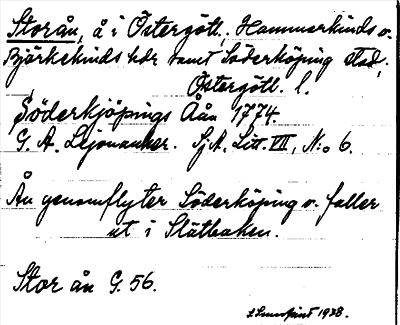 Storån, å i Östergötl. Hammarkinds o.
Bjärkekinds hdr samt Söderköping stad,
Östergötl. l.
Söderkjöpings Åån 1774.
G. A. Lejonancker. Sj. A. Litt. VII, N:o 6.
Ån genomflyter Söderköping o. faller
ut i Slätbaken.
Stor ån G. 56.
1938.